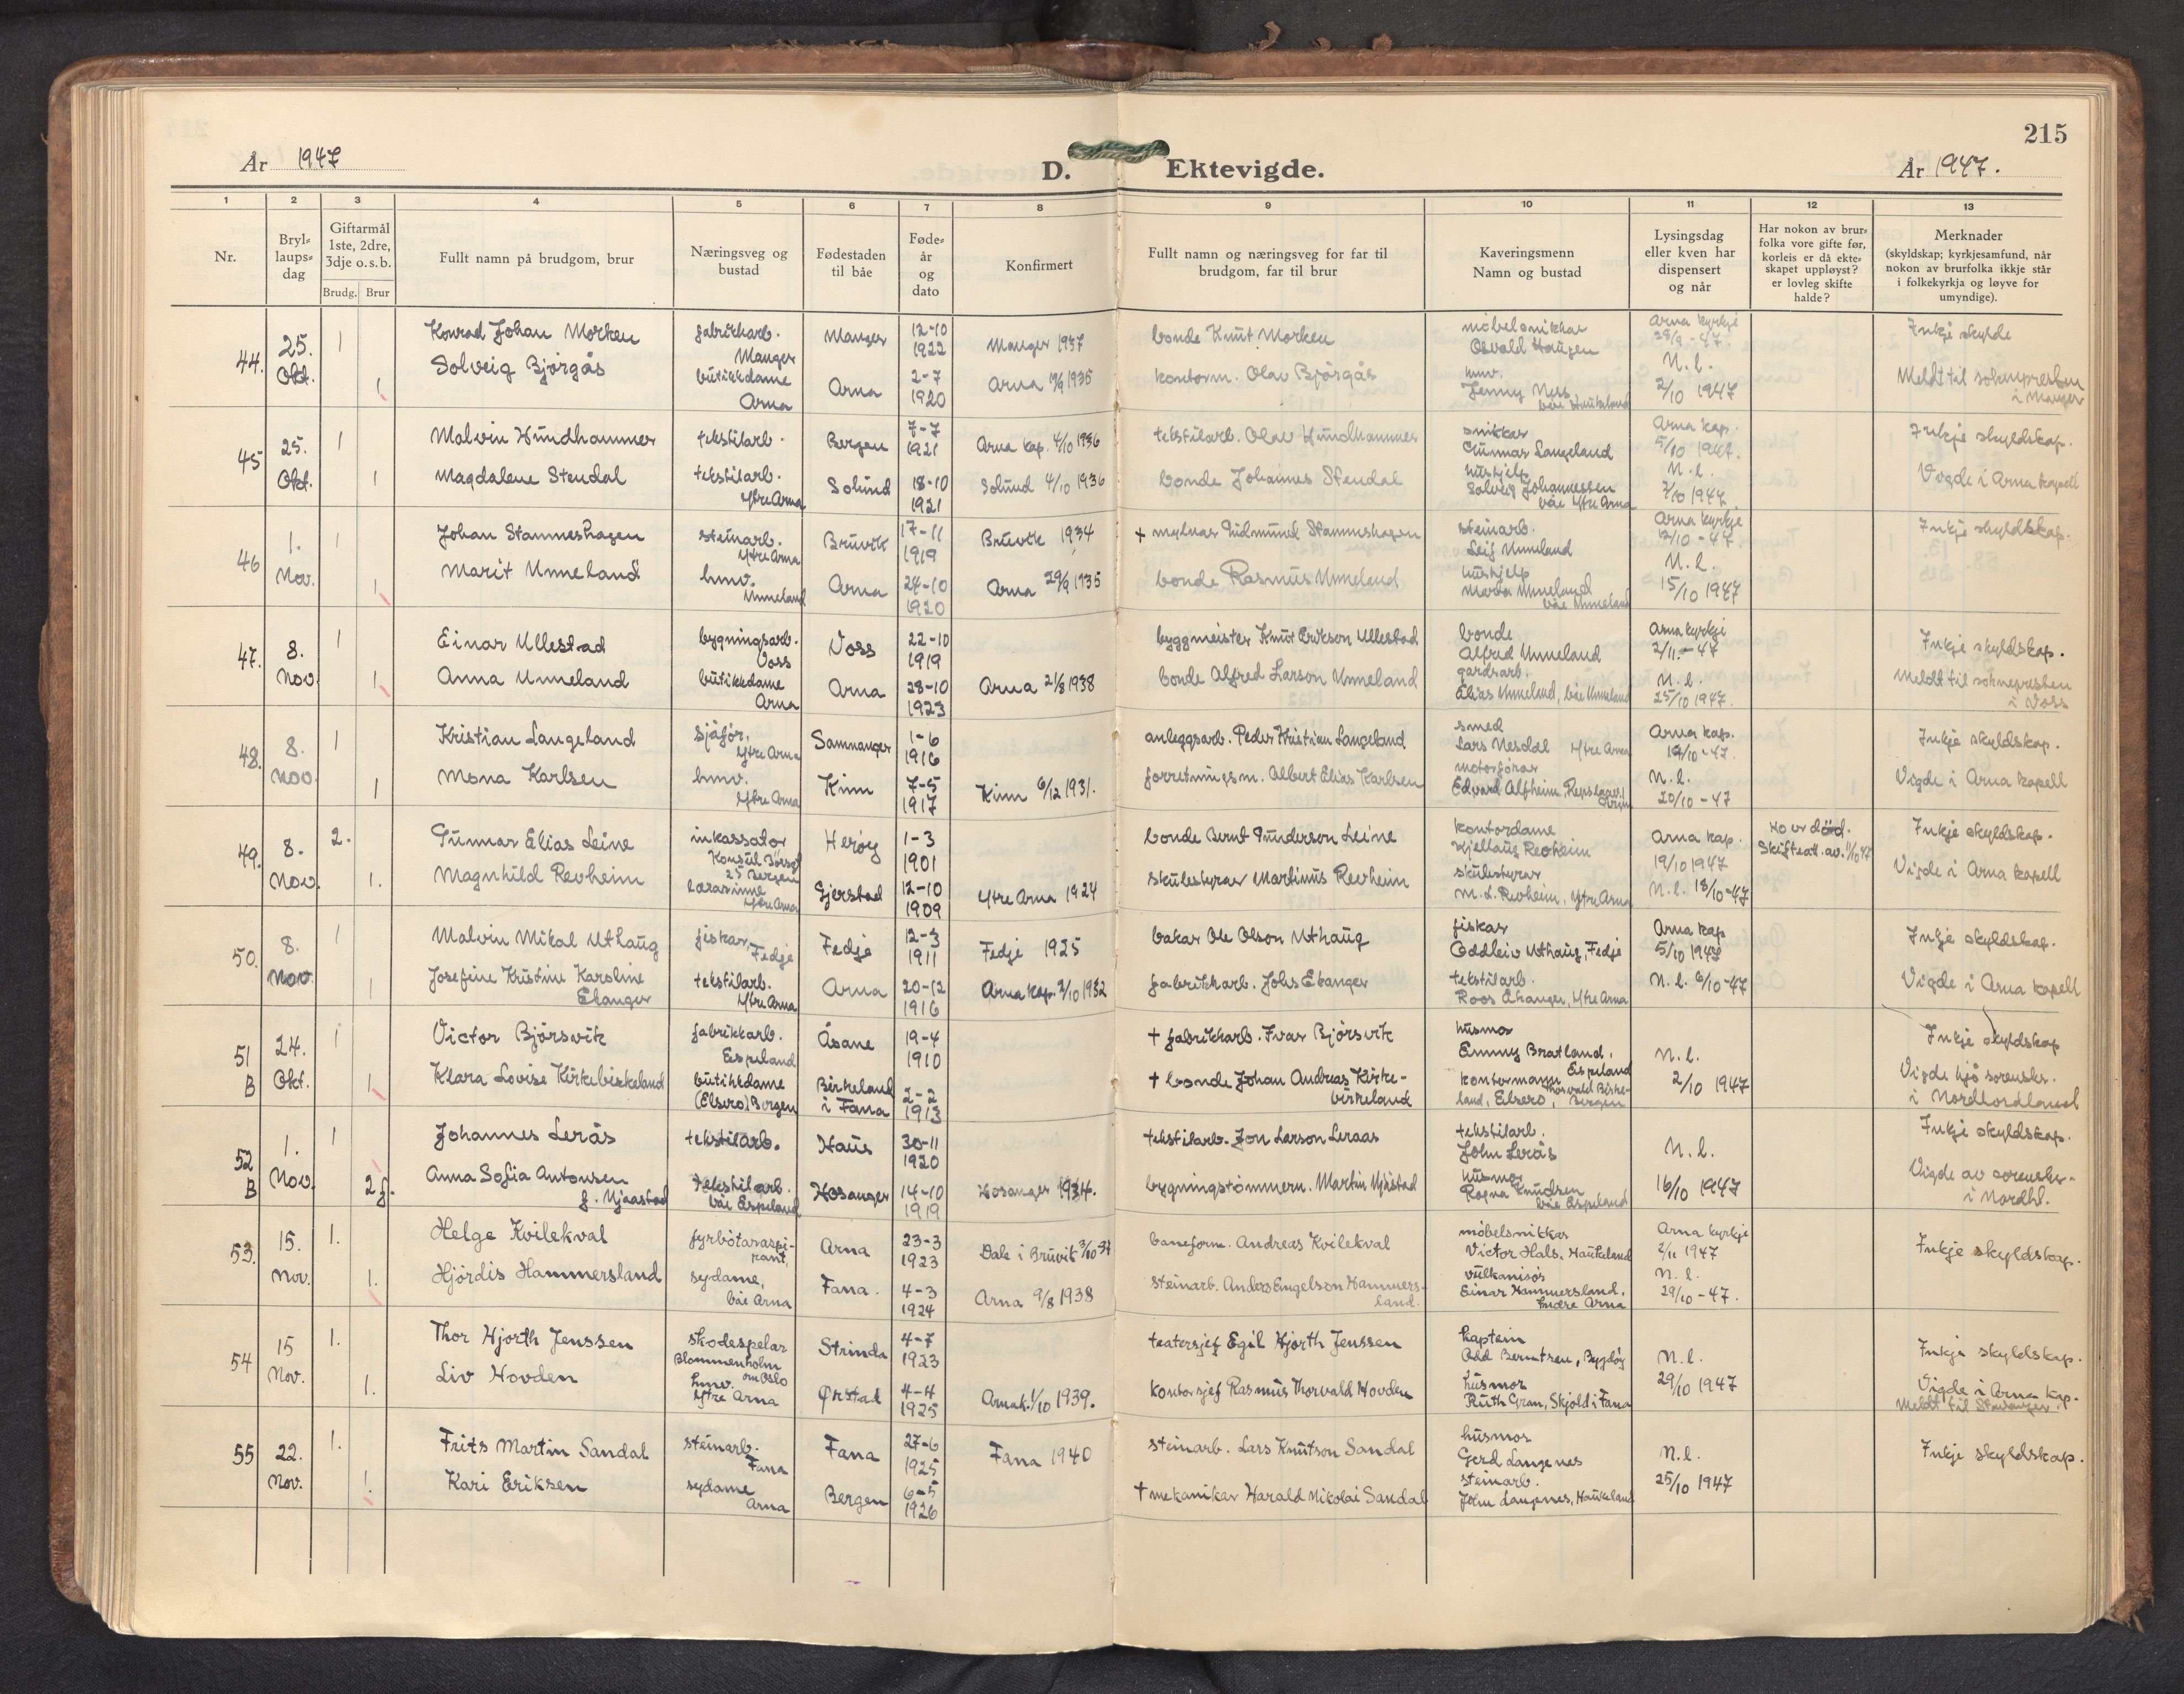 215
År 1947 D. Ektevigde. År 1947.
1 2 3 4 5 6 7 8 9 10 11 12 13
Nr.
Bryl-
laups-
dag
Giftarmål
1ste, 2dre,
3dje o. s. b.
Brudg. Brur
Fullt namn på brudgom, brur
Næringsveg og
bustad
Fødestaden
til båe
Føde-
år
og
dato
Konfirmert
Fullt namn og næringsveg for far til
brudgom, far til brur
Kaveringsmenn
Namn og bustad
Lysingsdag
eller kven har
dispensert
og når
Har nokon av brur-
folka vore gifte før,
korleis er då ekte-
skapet uppløyst?
er lovleg skifte
halde?
Merknader
(skyldskap; kyrkjesamfund, når
nokon av brurfolka ikkje står
i folkekyrkja og løyve for
umyndige).
44. 25. Okt. 1
Konrad Johan Morken
fabrikkarb.
Manger
Manger
12-10
1922
Manger 1937
bonde Knut Morken
møbelsnikkar
Osvald Haugen
Arna kyrkje
28/9 - 47.
Inkje skylde
1
Solveig Bjørgås
butikkdame
Arna
Arna
2-7
1920
Arna 1935
kontorm. Olav Bjørgås
hmv.
Jenny Ness
båe Haukeland
N. l.
2/10 1947
Meldt til soknepresten
i Manger
45 25. Okt. 1
Malvin Hundhammer
tekstilarb.
Bergen
7-7
1921
Arna kap. 4/10 1936
tekstilarb. Olav Hundhammer
snikkar
Gunnar Langeland
Arna kap.
5/10 1947.
Inkje skyldskap.
1
Magdalene Stendal
tekstilarb.
Ytre Arna
Solund
18-10
1921
Solund 4/10 1936
bonde Johannes Stendal
hushjelp
Solveig Johannessen
båe Ytre Arna
N. l.
2/10 1947
Vigde i Arna kapell
46 1. Nov. 1
Johan Stammeshagen
steinarb.
Ytre Arna
Bruvik
17-11
1919
Bruvik 1934
+ mylnar Gudmund Stammeshagen
steinarb.
Leif Unneland
Arna kyrkje
12/10 - 47.
Inkje skyldskap.
1
Marit Unneland
hmv.
Unneland
Arna
24-10
1920
Arna 29/9 1935
bonde Rasmus Unneland
hushjelp
Marta Unneland
båe Unneland
N. l.
15/10 1947
47. 8. Nov. 1
Einar Ullestad
bygningsarb.
Voss
Voss
22-10
1919
byggmeister Knut Erikson Ullestad
bonde
Alfred Unneland
Arna kyrkje
2/11 - 47
Inkje skyldskap.
1
Anna Unneland
butikkdame
Arna
Arna
28-10
1923
Arna 21/8 1938
bonde Alfred Larson Unneland
gardsarb.
Elias Unneland, båe Unneland
N. l.
25/10 1947.
Meldt til soknepresten
i Voss
48. 8. Nov. 1
Kristian Langeland
sjåfør,
Ytre Arna
Samnanger
1-6
1916
anleggsarb. Peder Kristian Langeland
smed
Lars Nesdal Ytre Arna
Arna kap.
19/10 - 47.
Inkje skyldskap.
1
Mona Karlsen
hmv.
Ytre Arna
Kinn
7-5
1917
Kinn 6/12 1931.
forretningsm. Albert Elias Karlsen
motorførar
Edvard Alfheim,
N. l.
20/10 - 47
Vigde i Arna kapell
49. 8. Nov. 2.
Gunnar Elias Leine
inkassator
Konsul Børsgt
25 Bergen
Herøy
1-3
1901
bonde Bernt Gunderson Leine
kontordame
Kjellaug Revheim
Arna kap.
19/10 1947
Ho er død.
Skifteatt. av. 1/10 47
Inkje skyldskap.
1.
Magnhild Revheim
lærarinne
Ytre Arna
Gjerstad
12-10
1909
Ytre Arna 1924
skulestyrar Martinus Revheim
skulestyrar
M. L. Revheim, Ytre Arna
N. l. 18/10-47
Vigde i Arna kapell
50. 8. Nov. 1
Malvin Mikal Uthaug
fiskar,
Fedje
Fedje
12-3
1911
Fedje 1925
bakar Ole Olson Uthaug
fiskar
Oddleiv Uthaug, Fedje
Arna kap
5/10 1947
Inkje skyldskap.
1
Josefine Kristine Karoline
Ekanger
tekstilarb.
Ytre Arna
Arna
20-12
1916
Arna kap. 2/10 1932
fabrikkarb. Johs Ekanger
tekstilarb.
Roos Ekanger, Ytre Arna
N. l. 6/10-47
Vigde i Arna kapell
51 B 24. Okt. 1
Victor Bjørsvik
fabrikkarb.
Espeland
Åsane
19-4
1910
+ fabrikkarb. Ivar Bjørsvik
husmor
Emmy Bratland,
Espeland
N. l.
2/10 1947
Inkje skyldskap
1
Klara Lovise Kirkebirkeland
butikkdame
(Elsero) Bergen
Birkeland
i Fana
2-2
1913
+ bonde Johan Andreas Kirke-
birkeland
kontormann Torvald Birke-
land, Elsero, Bergen
Vigde hjå sorenskr.
i Nordhordland
52 B 1. Nov. 1
Johannes Lerås
tekstilarb.
Haus
30-11
1920
tekstilarb. Jon Larson Leraas
tekstilarb.
John Lerås
N. l.
16/10 1947
Inkje skyldskap.
2 f.
Anna Sofia Antonsen
f. Mjaastad
tekstilarb.
båe Espeland
Hosanger
14-10
1919
Hosanger 1934.
bygningstømmerm. Martin Mjåstad
husmor
Ragna Knudsen
båe Espeland
Vigde av sorenskr.
i Nordhl.
53. 15. Nov. 1.
Helge Kvilekval
fyrbøtaraspi-
rant,
Arna
23-3
1923
Dale i Bruvik 3/10-37
baneform. Andreas Kvilekval
møbelsnikkar
Victor Hals, Haukeland
Arna kyrkje
2/11 1947
Inkje skyldskap.
1.
Hjørdis Hammersland
sydame,
båe Arna
Fana.
4-3
1924
Arna 9/8 1938
steinarb. Anders Engelson Hammers-
land.
vulkanisør
Einar Hammersland,
Indre Arna
N. l.
29/10 - 47.
54 15 Nov. 1.
Thor Hjorth Jenssen
skodespelar
Blommenholm
om Oslo
Strinda
4-7
1923
teatersjef Egil Hjorth Jenssen
kaptein
Odd Berntsen, Bygdøy
N. l.
29/10 1947
Inkje skyldskap.
1.
Liv Hovden
hmv.
Ytre Arna
Ørstad
4-4
1925
Arna k. 1/10 1939.
kontorsjef Rasmus Thorvald Hovden
husmor
Ruth Gran, Skjold i Fana
Vigde i Arna kap.
Meldt til Stavanger
55 22. Nov. 1.
Frits Martin Sandal
steinarb.
Fana
Fana
27-6
1925
Fana 1940
steinarb. Lars Knutson Sandal
husmor
Gerd Langenes
N. l.
25/10 1947
Inkje skyldskap.
1.
Kari Eriksen
sydame
Arna
Bergen
6-5
1926
+ mekanikar Harald Mikolai Sandal
steinarb.
John Langenes, Haukeland